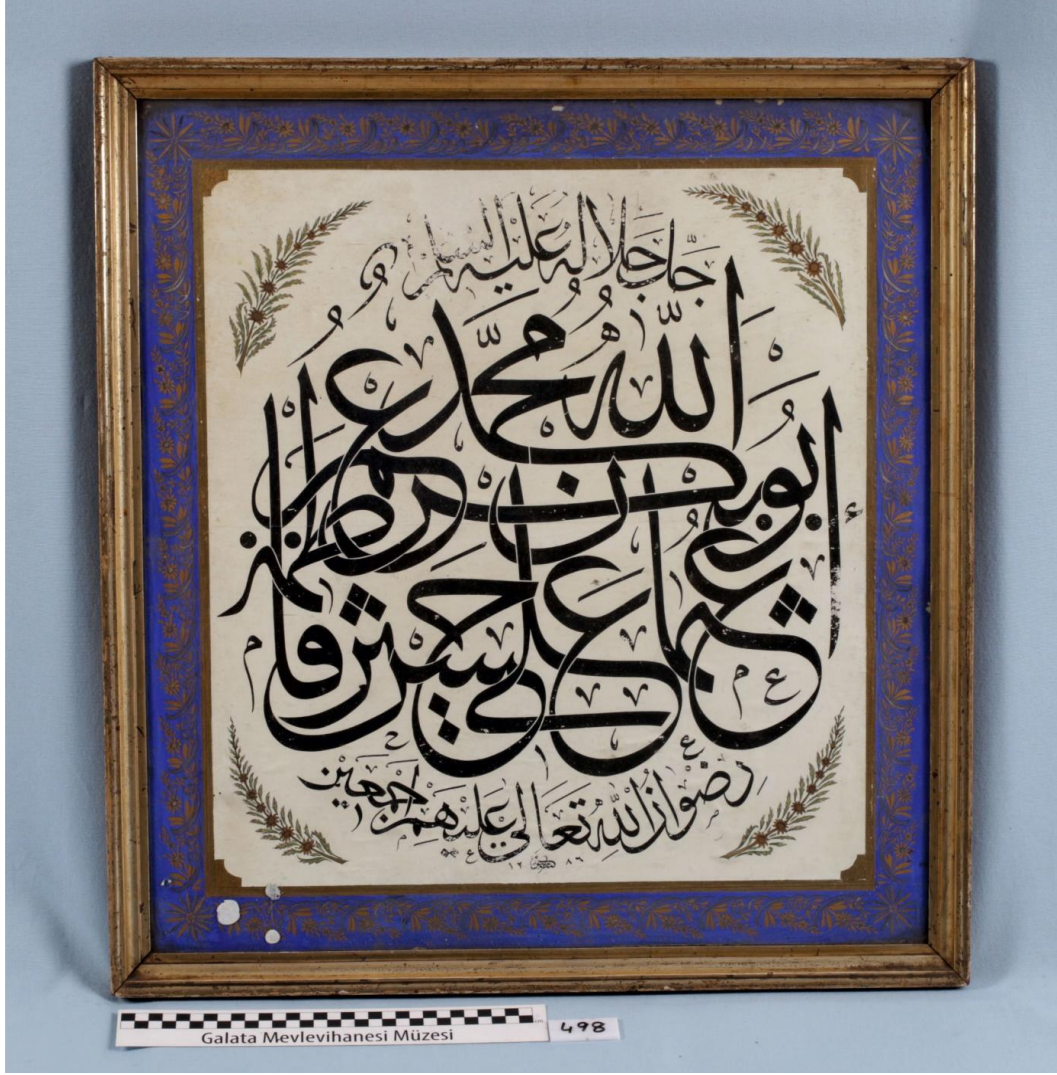 جل جلاله عليه السلام
الله محمد
أبو بكر عمر
عثمان على حسن حسين فاطمة
رضوان الله تعالى عليهم اجمعين
١٢ ٨٦
Galata Mevlevihanesi Müzesi
498